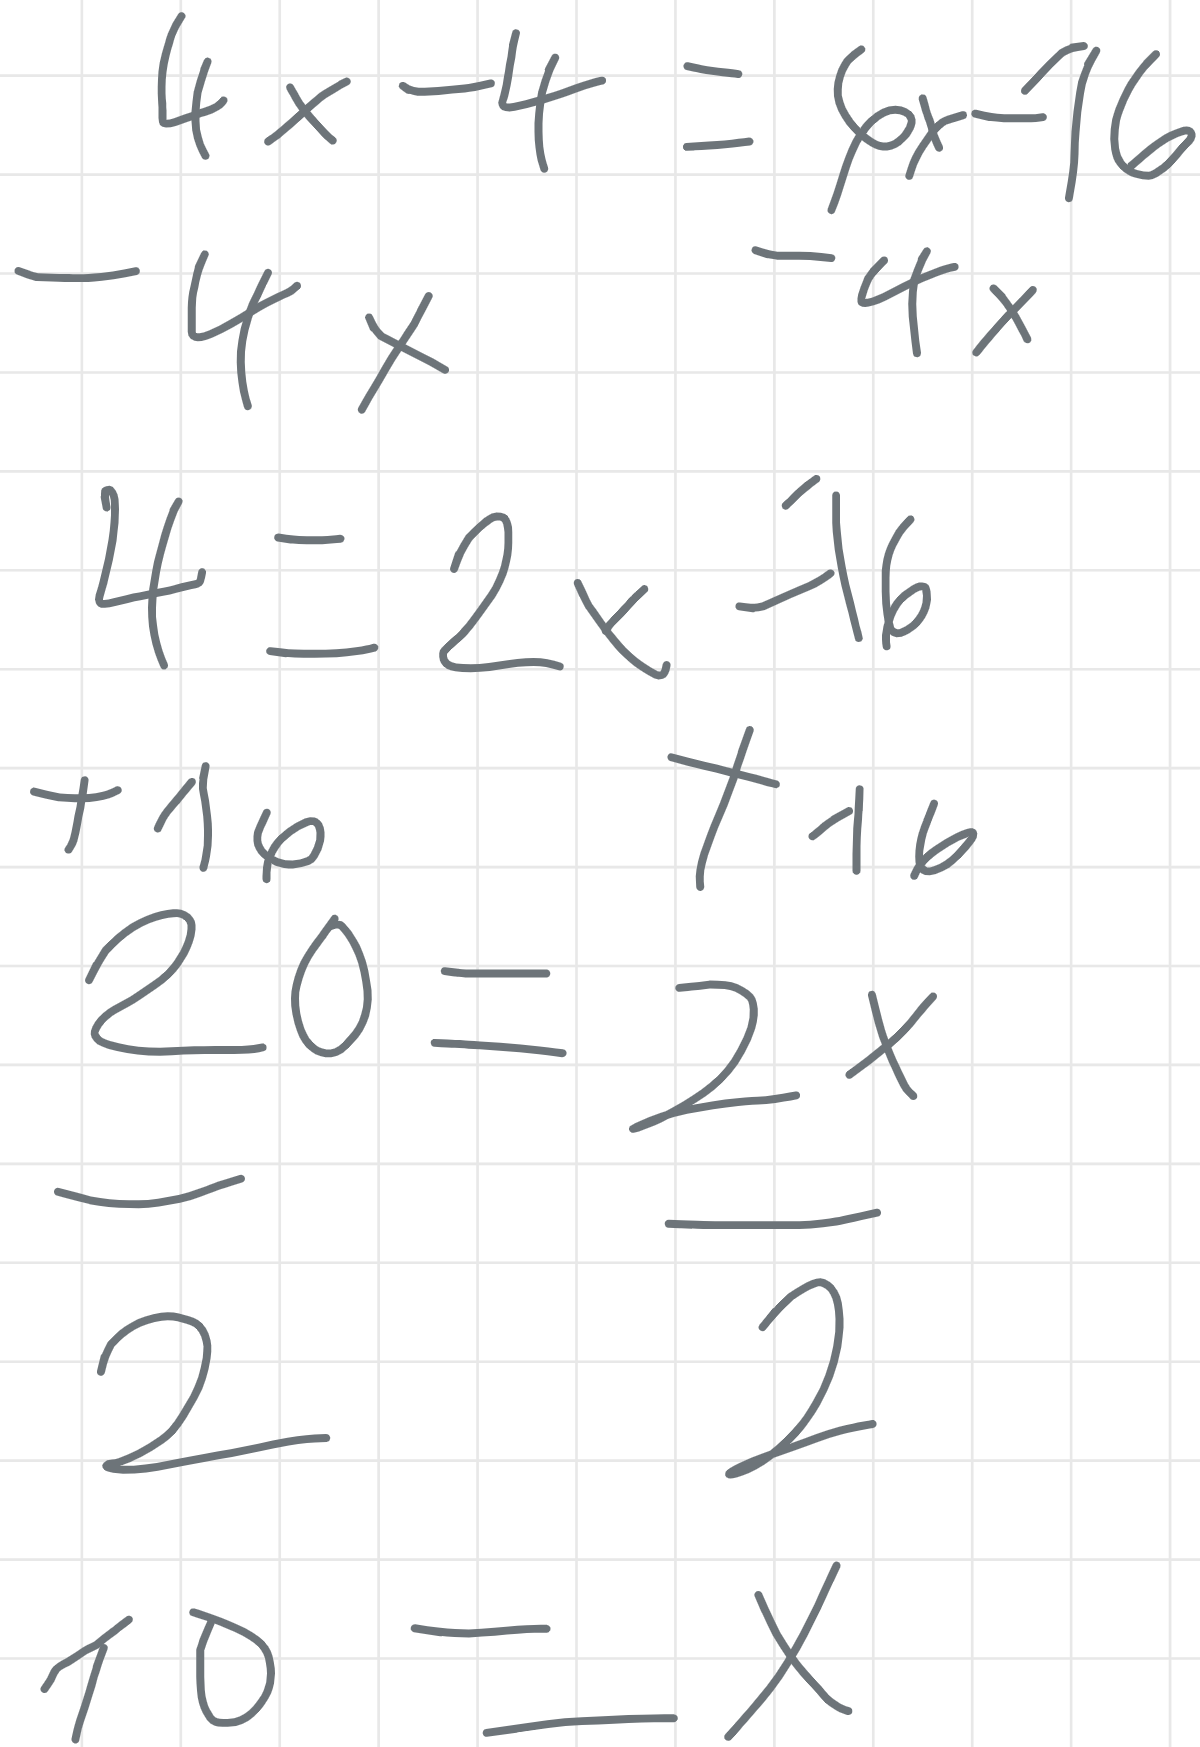 4x - 4 = 6x - 16
- 4x - 4x
4 = 2x - 16
+ 16 + 16
20 = 2x
— —
2 2
10 = x